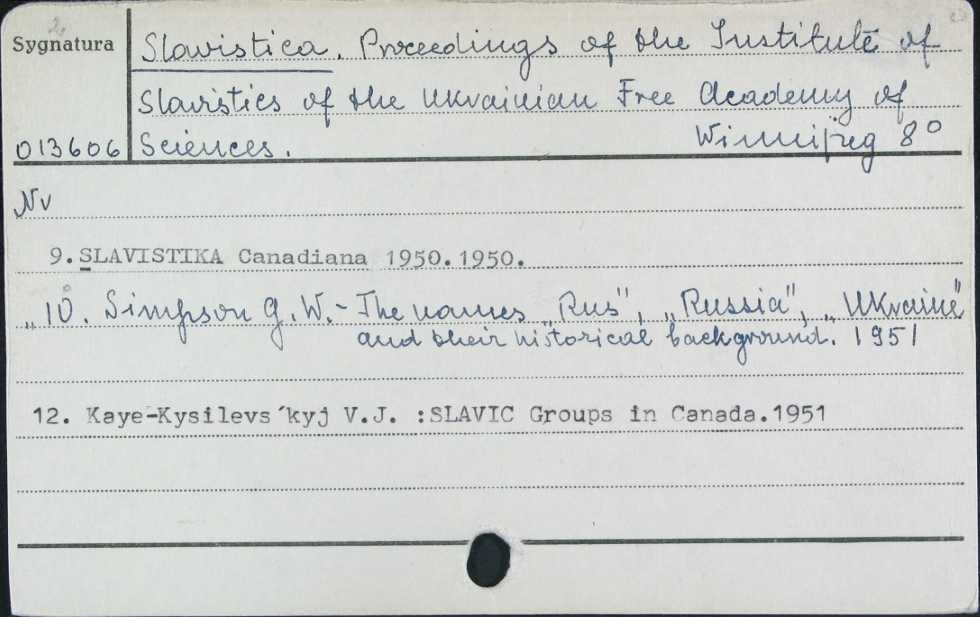 Sygnatura
Slavistica. Proceedings of the Institute of
Slavistics of the Ukrainian Free Academy of
013606 Sciences. Winnipeg 8°
Nv
9. SLAVISTIKA Canadiana 1950.1950.
„10. Simpson G.W.- The names „Rus", „Russia", „Ukraine"
and their historical background. 1951
12. Kaye-Kysilevs´kyj V.J. :SLAVIC Groups in Canada.1951